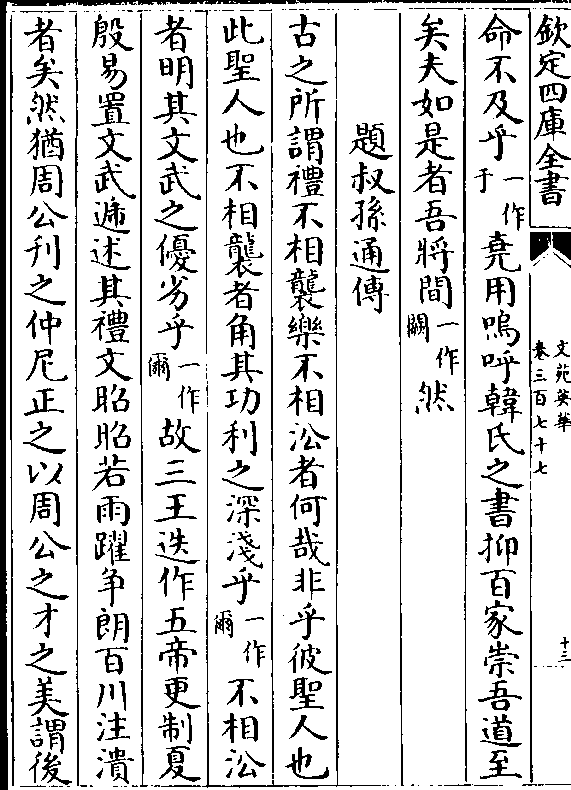 欽定四庫全書
文苑英華
卷三百七十七
十三
命不及乎一作于堯用嗚呼韓氏之書抑百家崇吾道至
矣夫如是者吾將間一作闢然
題叔孫通傳
古之所謂禮不相襲樂不相㳂者何哉非乎彼聖人也
此聖人也不相襲者角其功利之深淺乎一作爾不相㳂
者明其文武之優劣乎一作爾故三王迭作五帝更制夏
殷易置文武遞述其禮文昭昭若雨躍爭朗百川注潰
者矣然猶周公刋之仲尼正之以周公之才之美謂後